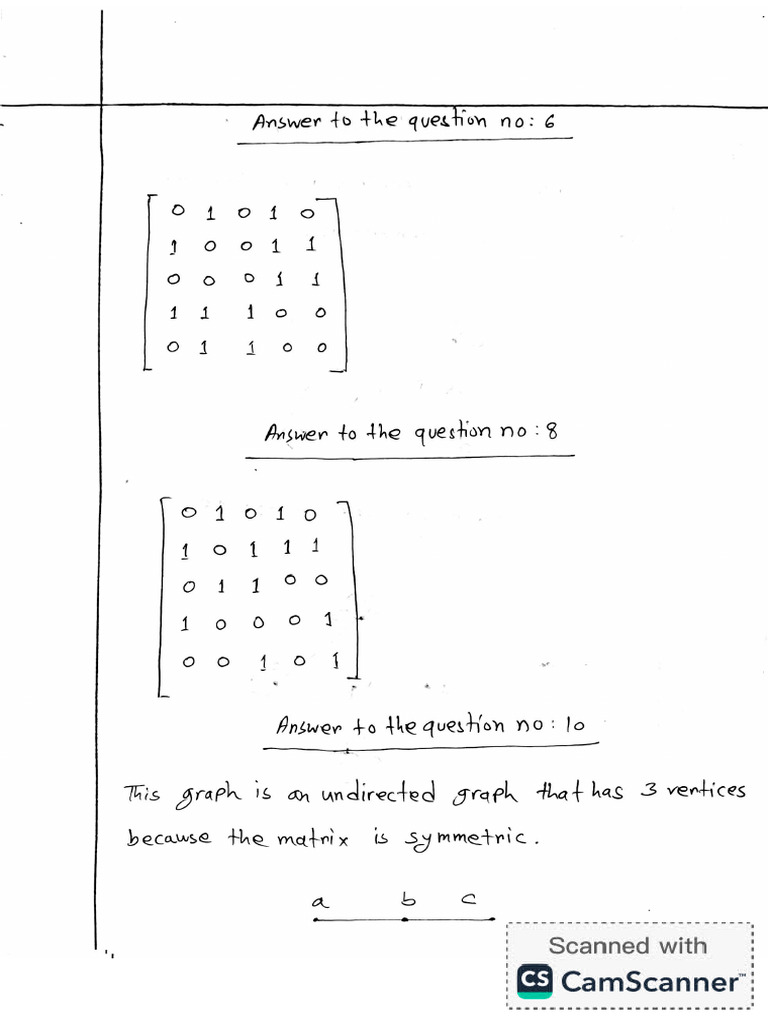 Answer to the question no: 6
0 1 0 1 0
1 0 0 1 1
0 0 0 1 1
1 1 1 0 0
0 1 1 0 0
Answer to the question no: 8
0 1 0 1 0
1 0 1 1 1
0 1 1 0 0
1 0 0 0 1
0 0 1 0 1
Answer to the question no: 10
This graph is an undirected graph that has 3 vertices
because the matrix is symmetric.
a b c
Scanned with
CS CamScanner™